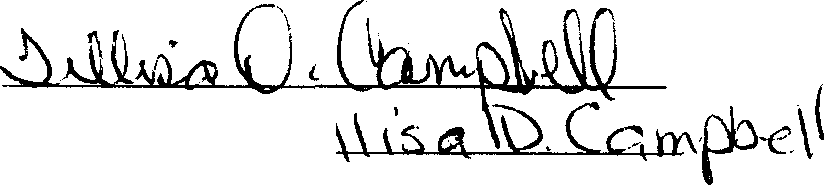 Tillisa D. Campbell
llisa D. Campbell